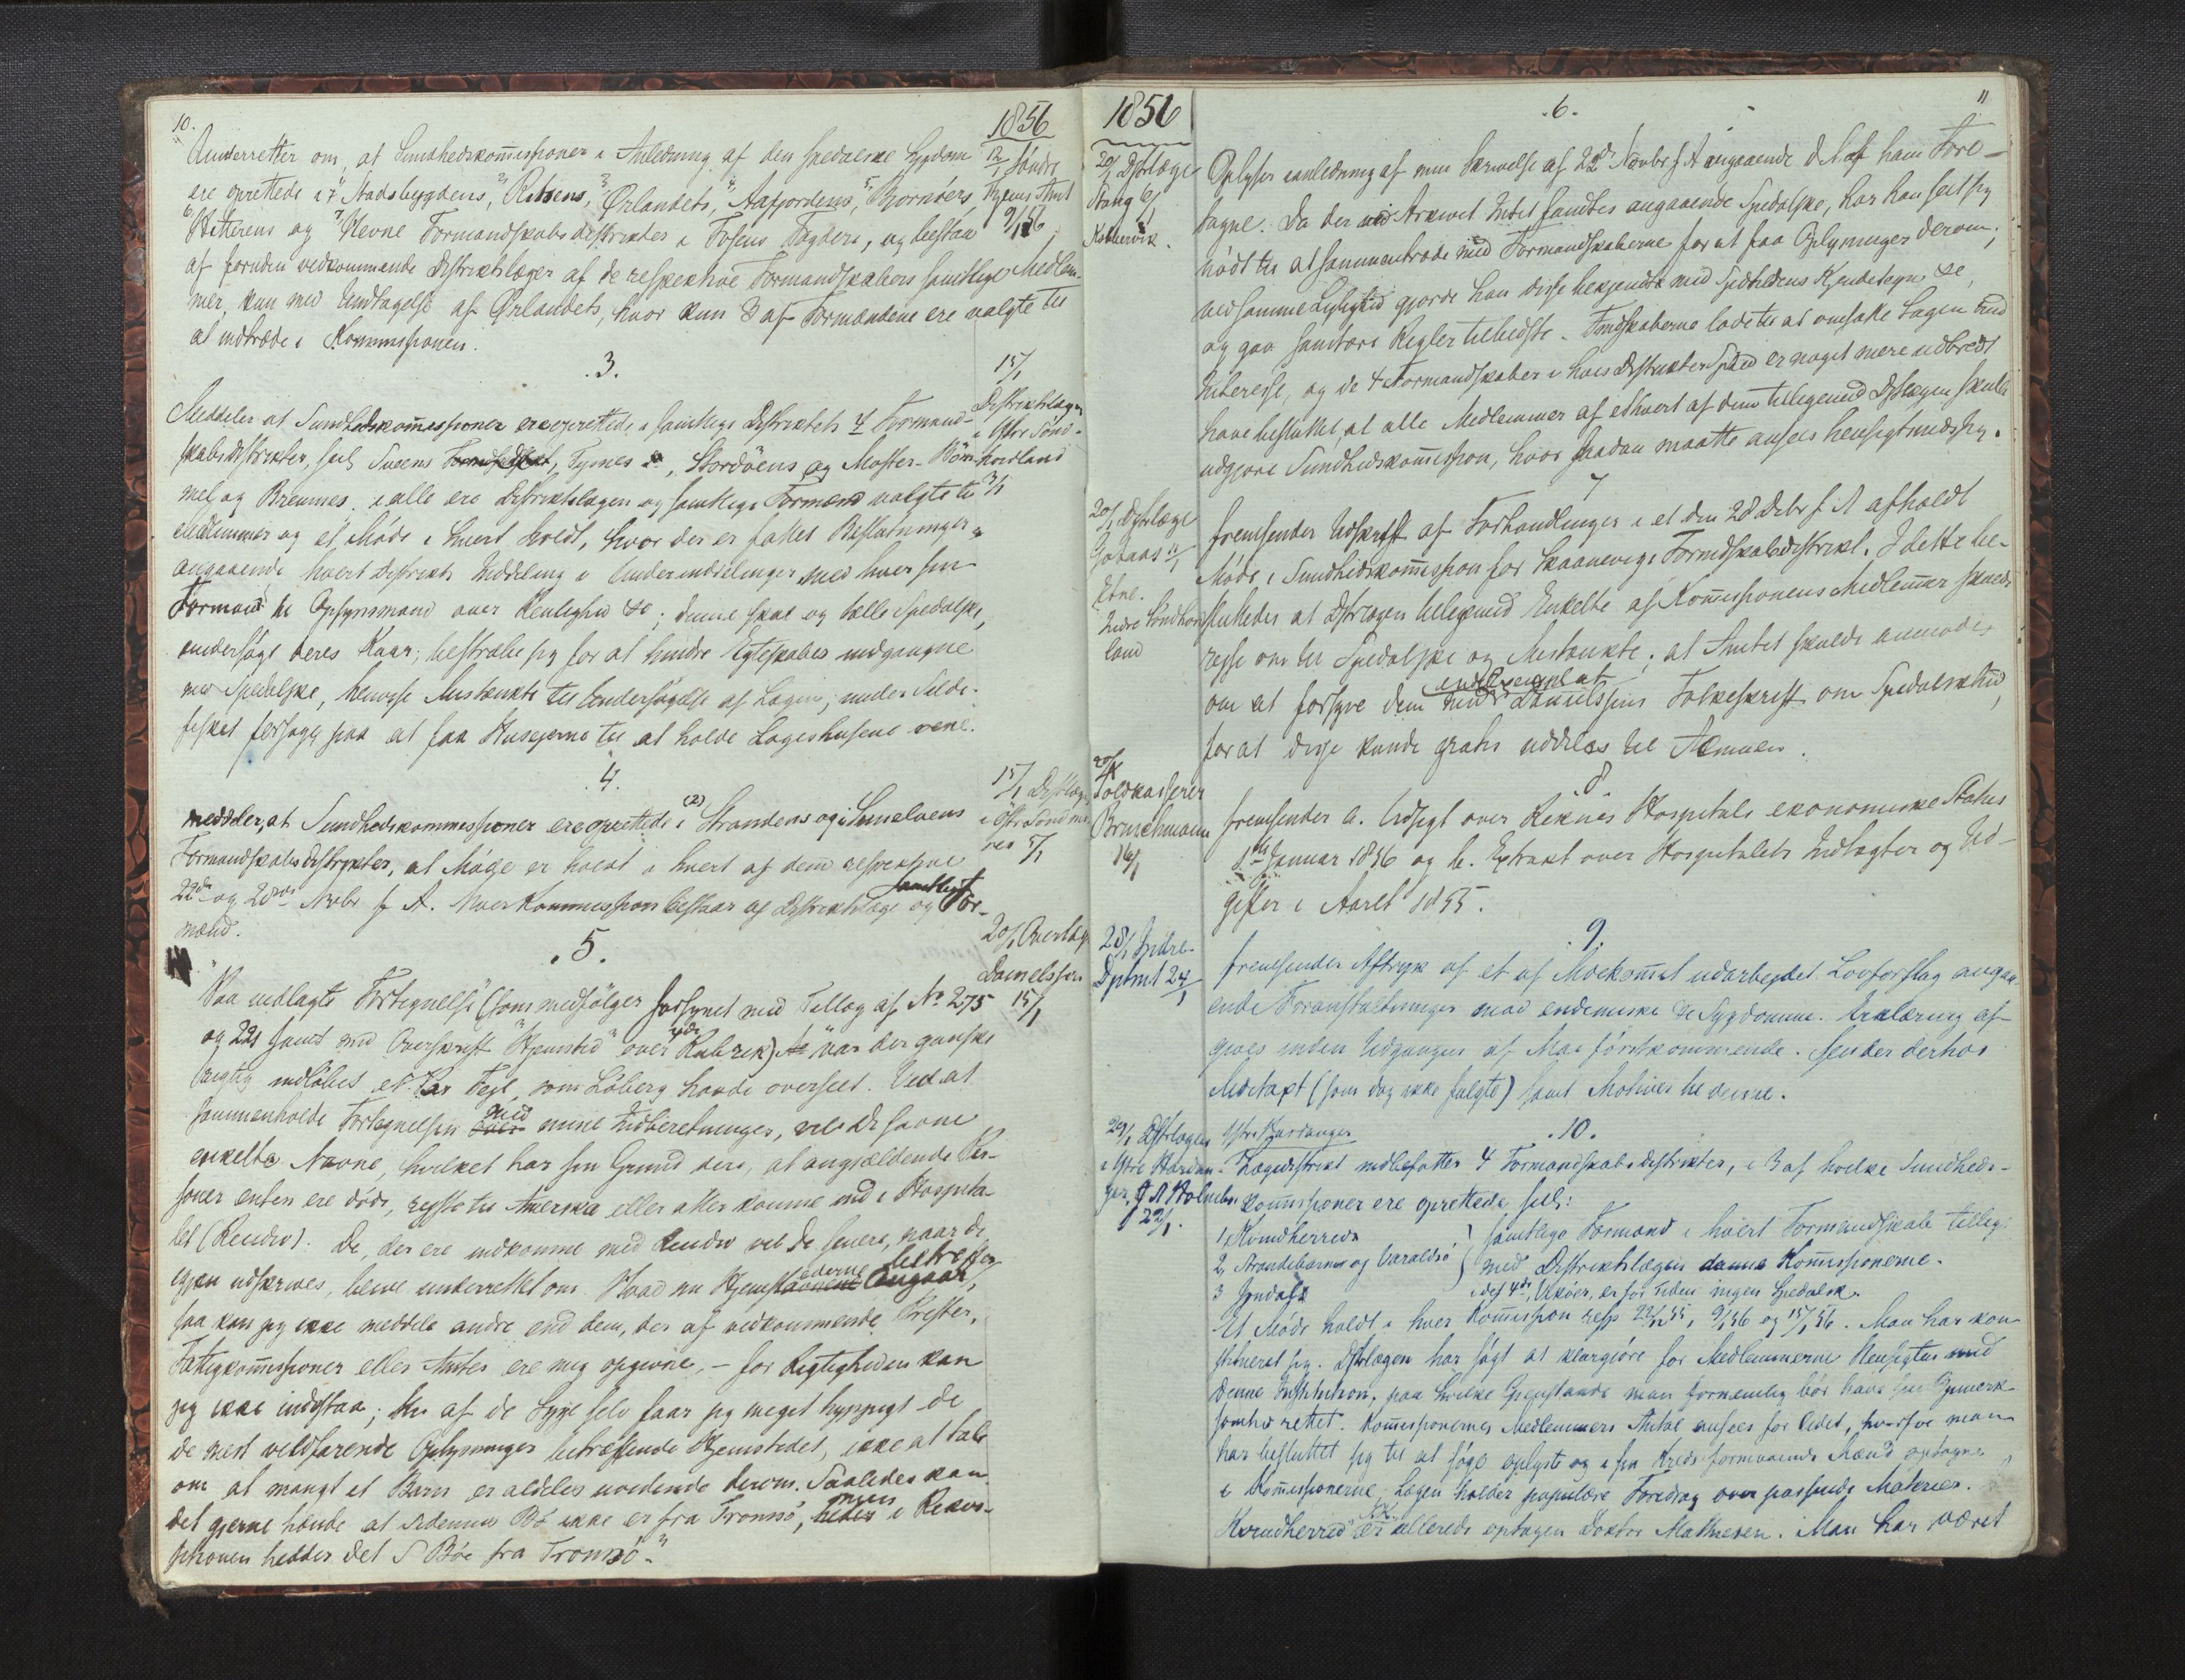 10.
1856
Underretter om, at Sundhedskom̅issioner i Anledning af den spedalske Sygdom
12/1 Söndre
ere oprettede i 7 Stadsbygdens, Rissens, Ørlandets, Aafjordens, Bjornörs,
Thjems Amt
Hitterens og Hevne Formandskabsdistrikter i Fosens Fogderi, og bestaa
9/1 56
af foruden vedkommende Distriktslæger af de respektive Formandskabers samtlige Medlem-
mer, kun med Undtagelse af Ørlandets, hvor kun 3 af Formændene ere valgte til
at indtræde i Kommissionen.
.3.
15/1
Distriktslægen
Meddeler at Sundhedskom̅issioner ere oprettede i samtlige Distriktets 4 Formand-
i Ytre Sönd-
skabsdistrikter, scil Fusens, Tysnes, Stordöens og Moster-Böm-
hordland
mel og Bremnes. i alle ere Distriktslægen og samtlige Formænd valgte til
Medlemmer og et Möde i hvert holdt, hvor der er fattet Beslutninger
angaaende hvert Distrikts Inddeling i Underinddelinger med hver sin
Formand til Opsynsmand over Renlighed &c; denne skal og tælle Spedalske,
undersöge deres Kaar; bestræbe sig for at hindre Egteskabers indgaaque
med Spedalske, henvise Mistænkte til Undersögelse af Lægen; under Silde-
fisket forsøge paa at faa Husejerne til at holde Logishusene rene.
.4.
15/1 Distlægen
meddeler, at Sundhedskommissioner ere oprettede i (2) Strandens og i Sunelvens
i Östre Söndmö-
Formandskabsdistrikter, at Möde er holdt i hvert af dem respektive
res 5/1
22de og 28de Novbr f A. Hver Kommission bestaar af Distriktslæge og samtlige For-
mænd.
.5.
20/1 Overlæge
Danielssen
15/1
Paa indlagte Fortegnelse (som medfölger forsynet med Tillæg af No 275
og 221 samt med Overskrift "Hjemsted" over 4de Rubrik) var der ganske
rigtig indlöbet et Par Fejl, som Löberg havde overseet. Ved at
sammenholde Fortegnelsen med mine Indberetninger, vil De savne
enkelte Navne, hvilket har sin Grund deri, at angjældende Per-
soner enten ere döde, rejste til Amerika eller atter komne ind i Hospita-
let (Recidiv). De, der ere indkomne med Recidiv vil De senere, naar de
igjen udskrives, blive underrettet om. Hvad nu Hjemstederne betræffer,
saa kan jeg ikke meddele andre end dem, der af vedkommende Prester,
Fattigkom̅issioner eller Amter ere mig opgivne, – for Rigtigheden kan
jeg ikke indestaa; thi af de Syge selv faar jeg meget hyppigt de
de mest vildfarende Oplysninger betræffende Hjemstedet, ikke at tale
om at mangt et Barn er aldeles uvidende derom. Saaledes kan
det gjerne hænde at Sidemia Bö ikke er fra Tromsö, men i Rekvi-
sitionen hedder det S Böe fra Tromsö."
1856
.6.
11
20/1 Dstrlæge
Stang 6/1
Kobbervik.
Oplyser i anledning af min Skrivelse af 22de Novbr f A angaaende d A af ham Fore-
tagne. Da der ved Arkivet Intet fandtes angaaende Spedalske, har han seet sig
nödt til at sammentræde med Formandskaberne for at faa Oplysninger derom;
ved samme Lejlighed gjorde han disse bekjendte med Spedskhedens Kjendetegn &c,
og gav sanitære Regler tilbedste. Fmdskaberne lode til at omfatte Sagen med
Interesse, og de 4 Formandskaber i hvis Distrikter Spskhd er noget mere udbredt
have besluttet, at alle Medlemmer af ethvert af dem tilligemed Dstlægen skulle
udgjöre Sundhedskom̅ission, hvor saadan maatte ansees hensigtsmæssig.
7
20/1 Dstrlæge
Etne.
Indre Söndhord-
land
fremsender Udskrift af Forhandlinger i et den 28 Debr f A afholdt
Möde i Sundhedskom̅ission for Skaanevigs Formdskabsdistrikt. I dette be-
sluttedes at Dstrlægen tilligemed Enkelte af Kom̅issionens Medlem̅er skulde
rejse om til Spedalske og Mistænkte; at Amtet skulde anmodes
om at forsyne dem med endel exemplar af Danielssens Folkeskrift om Spedalskhed,
for at disse kunde gratis uddeles til Almuen.
8
20/1
Toldkasserer
Bruchmann
16/1
fremsender a. Udsigt over Reknes Hospitals ekonomiske Status
1ste Januar 1856 og b. Extrakt over Hospitalets Indtægter og Ud-
gifter i Aaret 1855.
.9.
28/1 Indre-
Dptmt 24/1
fremsender Aftryk af et af Medkomm̅t udarbejdet Lovforslag angaa-
ende Foranstaltninger mod endemiske &c Sygdomme. Erklæring af-
gives inden Udgangen af Mai förstkommende. Sender derhos
Meditaxt (som dog ikke fulgte) samt Motiver til denne.
.10.
29/1 Dstrlægen
i Ytre Hardan-
ger. J A Holmboe
22/1.
Ytre Hardanger
Lægedistrikt indbefatter 4 Formandskabsdistrikter, i 3 af hvilke Sundheds-
kom̅issioner ere oprettede, scil:
1, Kvindherreds
2, Strandebarms og Varaldsö
3 Jondals
samtlige Formænd i hvert Formandskab tillige
med Distriktslægen danne Kom̅issionerne.
i det 4de, Vikör, er for Tiden ingen Spedalsk.
Et Möde holdt i hver Kom̅ission resp 29/12 55, 9/1 56 og 15/1 56. Man har kon
stitueret sig. Dstrlægen har sögt at klargjöre for Medlemmerne Hensigten med
denne Institution, paa hvilke Gjenstande man fornemlig bör have sin Opmærk-
somhed rettet. Kom̅issionernes Medlemmers Antal ansees for lidet, hvorfor man
har besluttet sig til at söge oplyste og i sin Kreds formaaende Mænd optagne
i Kom̅issionerne. Lægen holder populære Foredrag over passende Materier. I
Kvindherred er allerede optagen Doktor Mathiesen. Man har været